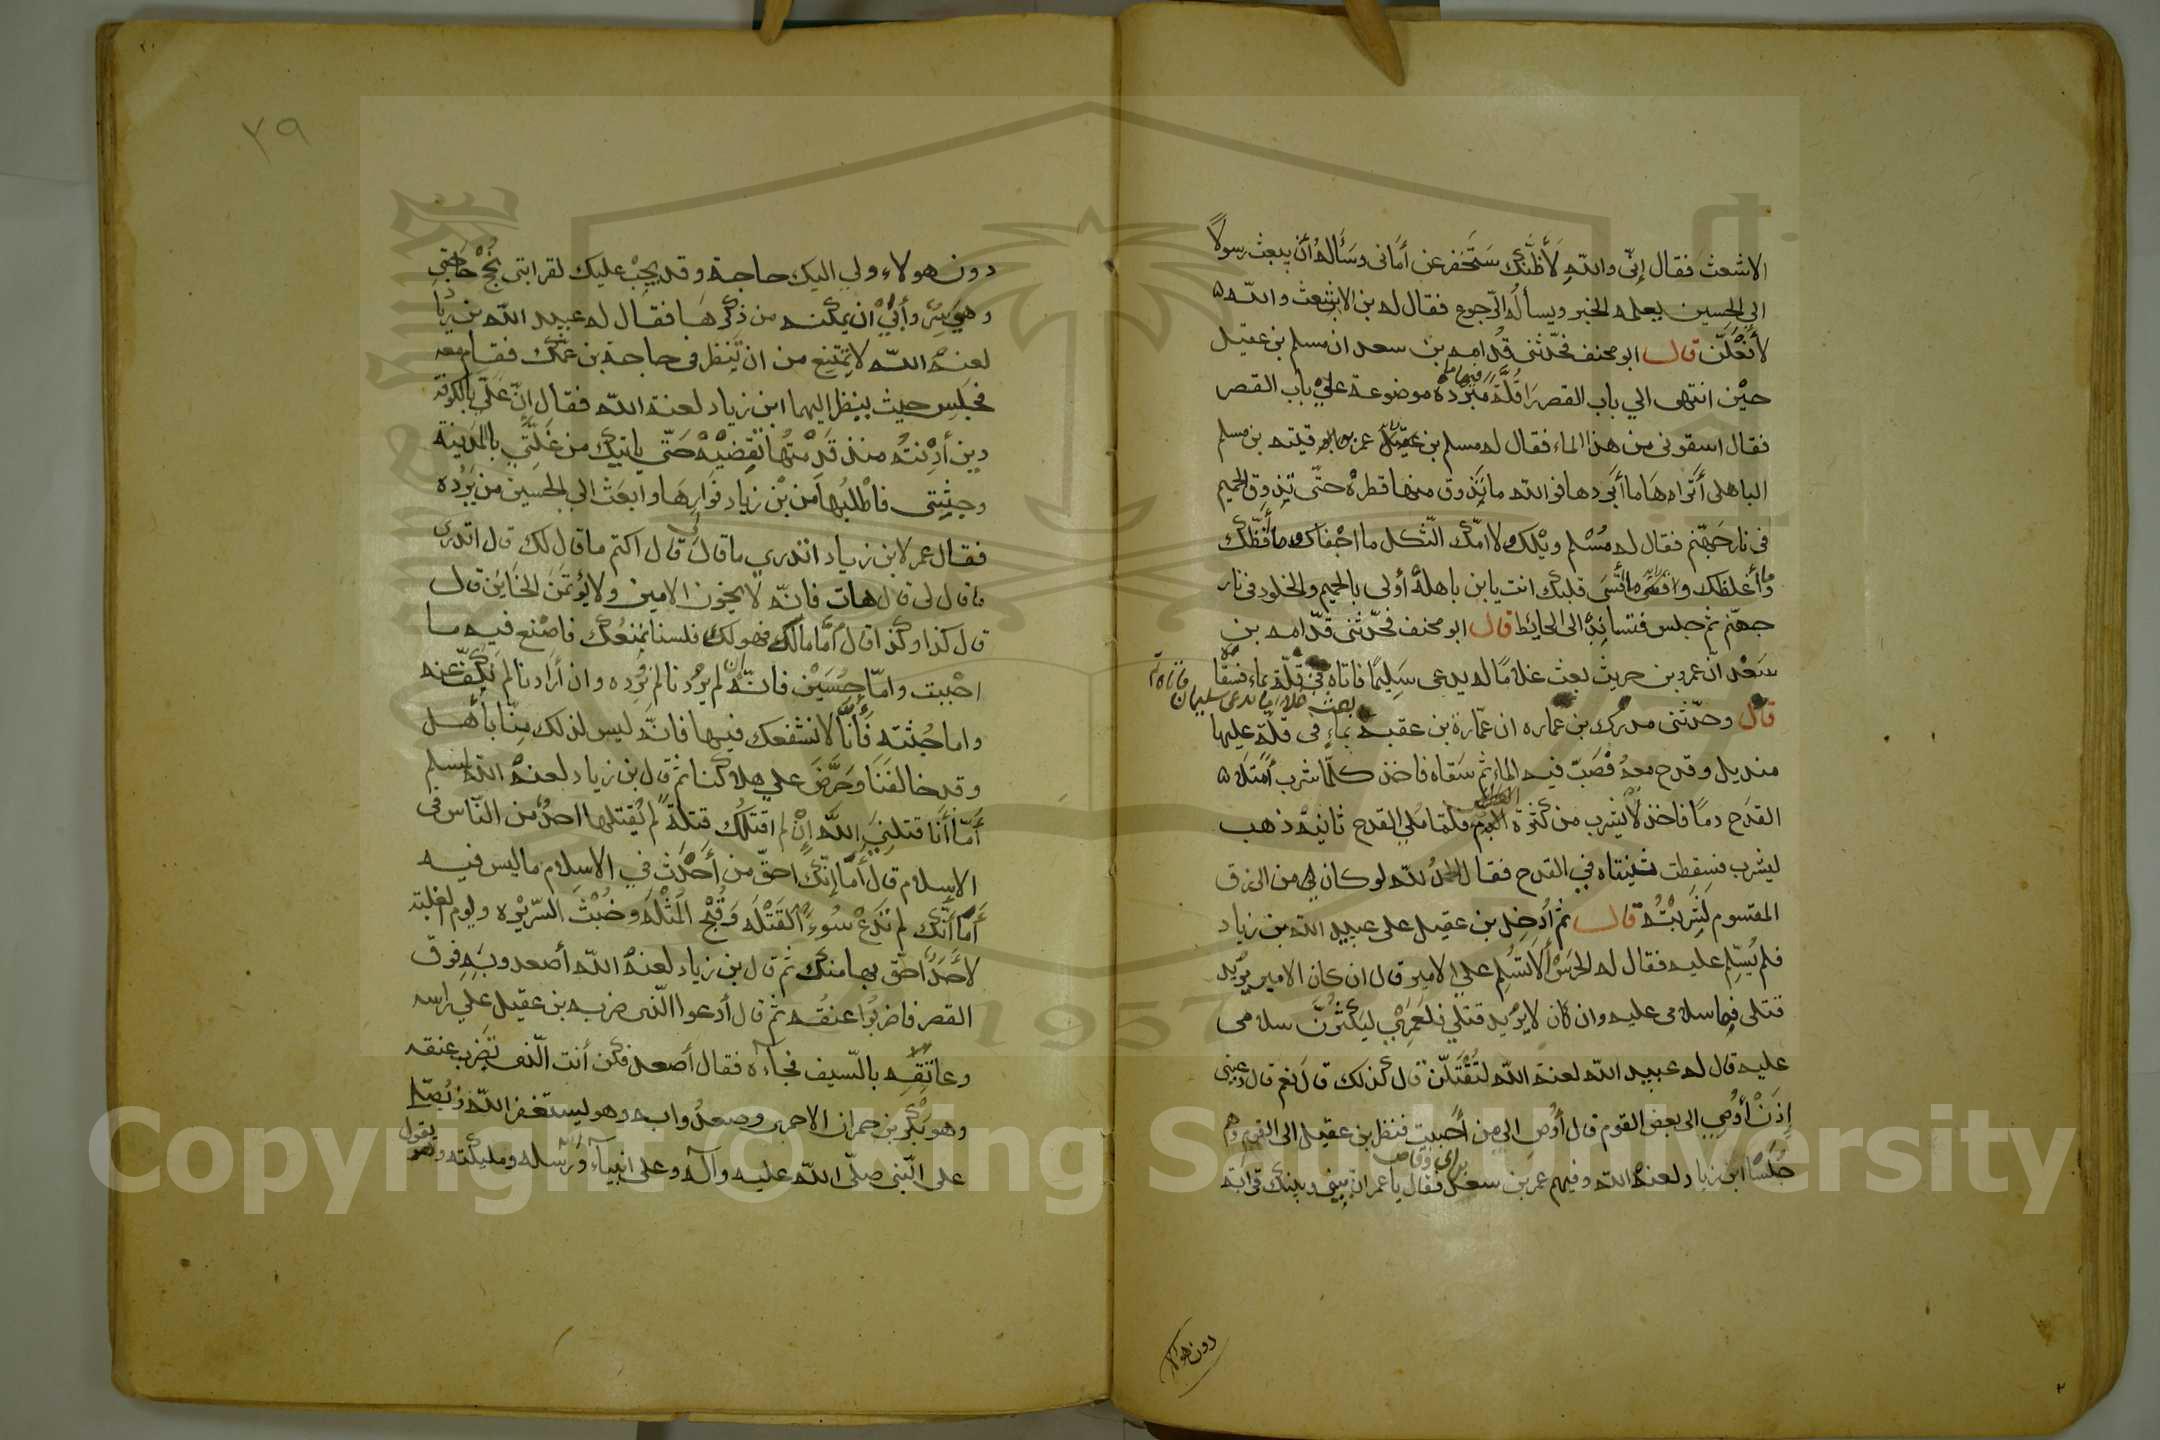 الاشعث فقال إنّي والله لَأَظنّك سَتَخفر عن أماني وسَأله أن يبعث رسولاً
الى الحسين يعلمه الخبر ويسأله الرّجوع فقال له بن الاشعث والله
لأَفْعَلَنّ قال ابو مخنف فحدّثني قُدامه بن سعد ان مسلم بن عقيل
حيْن انتهى الي باب القصر رَا قُلَّةً مُبَرَّدَة فيها ما موضوعة عليْ باب القصر
فقال اسقوني من هذا الماء فقال له مسلم بن عمر بو قتيبه بن مسلم
الباهلى أتراه هَا ما أبردها فوالله ما تَذوق منها قطره حتّى تذوق الحميم
في نار جَهنّم فقال له مُسْلم ويْلك ولامّك الثّكل ما اجْفاك وما أَفَظّك
وما أغلظك وا قسَى قلبك انت يا بن باهلة أولى بالحميم والخلود في نار
جهنّم ثم جلس فتساند الى الحايط قال ابو مخنف فحدّثني قدّامه بن
سَعْد انّ عمرو بن حريث بعث غلامًا له يدعى سَلِيمًا فاتاه في قُلّة بماء فسقا
فاتاه
قال وحدّثني مدرك بن عماره ان عمّارة بن عقبه بعث غلاما يدعى سليمان بماءٍ في قلّة عليها
منديل وقدح معهُ فصَبّ فيه الماء ثم سَقاه فاخذ كلّما شرب أمتلا
القدَح دمًا فاخذ لا يشرب من كثرة الدم فلمّا مُلي القدح ثانيةً ذهب
ليشرب فسقطت ثنيتاه في القدح فقال الحمدُ لله لو كان لي من الرزق
المقسوم لَشَرِبْتُهُ قال ثم اُدخِل بن عقيل على عبيد الله بن زياد
فلم يُسَلّم عليه فقال له الحَرَسُ ألاَ تُسَلِّم علي الامير قال ان كان الامير يُريد
قتلى فما سلامى عليه وان كان لا يُريد قتلي فلَعَمري ليَكثُرَنّ سلامى
عليه قال له عبيد الله لعنه الله لَتُقْتَلَنّ قال كذلك قال نعم قال دعني
إذَنْ أُوصي الى بعض القوم قال أوْصِ الي من أحببت فنظر بن عقيل الى القوم وهم
جُلَسَا ابن زياد لعنه الله وفيهم عمر بن سعد بن ابي وقاص فقال يا عمر ان بيني وبينك قرابَة
دون هولا
٢٩
دون هولاء ولي اليك حاجة وقد يجبْ عليك لقرابتي نُجْحُ حَاجَتي
وهي سِرّ وأبيْ ان يمكنه من ذكرها فقال له عبيد الله بن زياد
لعنه الله لا تمتنع من ان تنظر في حاجة بن عمّك فقام معه
فجلس حيث ينظر اليهما ابن زياد لعنة الله فقال إنّ عَليّ بالكوفة
دين أدِنْتُه منذ قَدِمْتُها تقضيْه حَتّى ياتيك من غَلّتي بالمدينة
وجثتي فاطْلبُها من بْن زياد فوارهَا وابعَث الي الحسين من يَرُدّه
فقال عمر لابن زياد اتدري ما قال لي قال اكتم ما قال لك قال اتدرى
ما قال لى قال هات فانّه لا يخون الامين ولا يُؤتمَن الخَاين قال
قال كذا وكذا قال أمّا مالك فهو لك فلسنا نمنعُك فاصْنع فيه ما
احْببت وامّا حُسَيْن فانّه ان لم يُرِدْنا لم نُرِده وان أرَادنا لم نَكُفّ عنه
واما جُثته فإنّا لا نشفعك فيها فانّه ليس لذلك مِنّا بأهل
وقد خالفنَا وحَرَّضَ علي هلاكنا ثم قال بن زياد لعنه الله لمسلم
أَمّا أنَا قتلنيَ الله إنْ لم اقتلك قتلةً لم يُقتلها احدٌ من النّاس في
الاسلام قال أمّا إنّك احقّ من أَحْدَثَ في الاسلام ما ليس فيه
أَمَا أنّك لم تَدَعْ سُوءِ القَتْلَه وَقُبْحَ المُثْلَه وخُبْثَ السّريْرَه ولوم لغلبة
لا أَحَدٌ احقّ بها منك ثم قال بن زياد لعنه الله أصعدوبَه فوق
القصر فاضربُوا عنقُه ثم قال أدعوا الّذى ضربه بن عقيل علي راسه
وعاتقه بالسّيف فجآءه فقال أصعد فكن أنت الّذى تضرب عنقه
وهو بُكيْر بن حمران الاحمرى وصعدُوا به وهو يستغفر الله ويُصلّى
على النّبى صلّى الله عليه وآله وعلى انبيآء ورُسله ومليكته وهو يقول
Copyright © King Saud University
1957